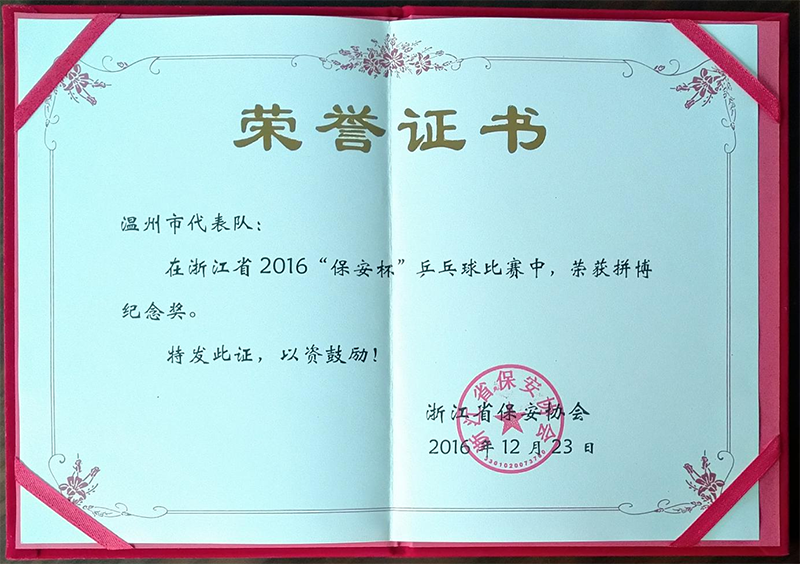 荣誉证书
温州市代表队：
在浙江省2016“保安杯”乒乓球比赛中，荣获拼博
纪念奖。
特发此证，以资鼓励！
浙江省保安协会
浙江省保安协会
2016年12月23日